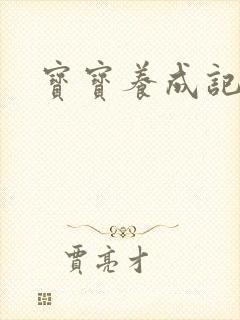 寶寶養成記
賈亮才